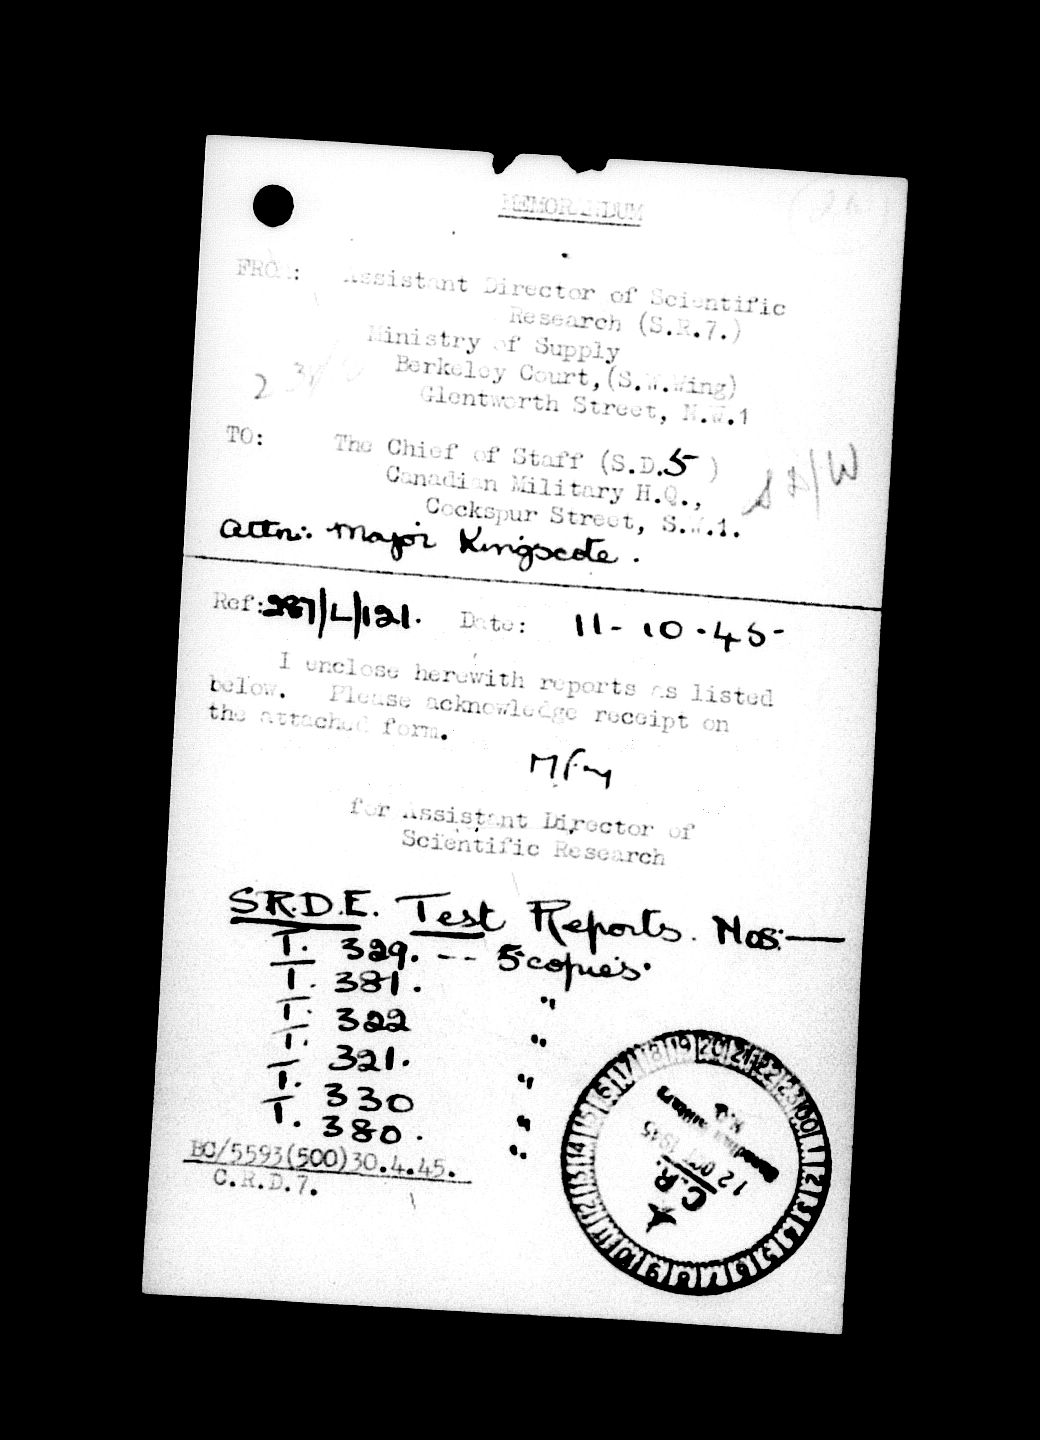 MEMORANDUM
FROM: Assistant Director of Scientific
Research (S.R.7.)
Ministry of Supply
Berkeley Court,(S.W.Wing)
Glentworth Street, N.W.1
TO: The Chief of Staff (S.D.5 )
Canadian Military H.Q.,
Cockspur Street, S.W.1.
Attn: Major Kingscote.
Ref: 287/L/121. Date: 11-10-45-
I enclose herewith reports as listed
below. Please acknowledge receipt on
the attached form.
for Assistant Director of
Scientific Research
S.R.D.E. Test Reports. Nos:—
T. 329. -- 5 copies.
T. 381. "
T. 322 "
T. 321. "
T. 330 "
T. 380. "
BC/5593(500)30.4.45.
C.R.D.7.
Canadian Military
H.Q.
12 OCT 1945
C.R.
00 1 2 3 4 5 6 7 8 9 10 11 12 13 14 15 16 17 18 19 20 21 22 23